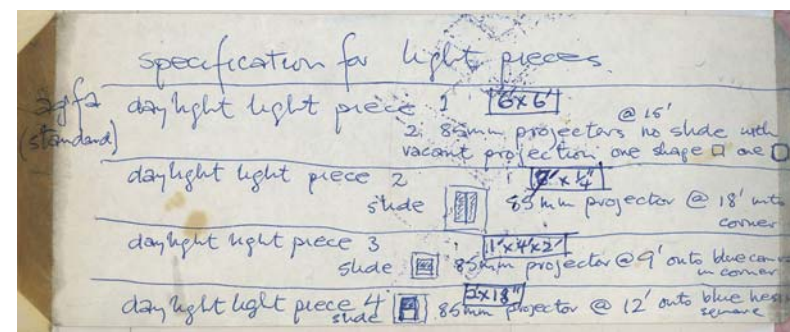 specification for light pieces
agfa
(standard)
daylight light piece 1 6'x6' @ 15'
2 85mm projectors no slide with
vacant projection one shape □ one
daylight light piece 2
slide 85mm projector @ 18' into
corner
daylight light piece 3 1'x4'x2'
slide 85mm projector @ 9' onto blue
in corner
daylight light piece 4 2x18"
slide 85mm projector @ 12' onto blue
square